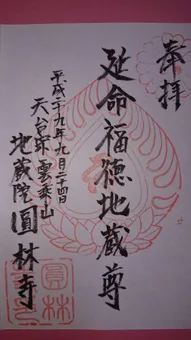 奉拝
延命福徳地蔵尊
平成二十九年九月二十四日
天台宗雲乗山
地蔵院圓林寺
圓林